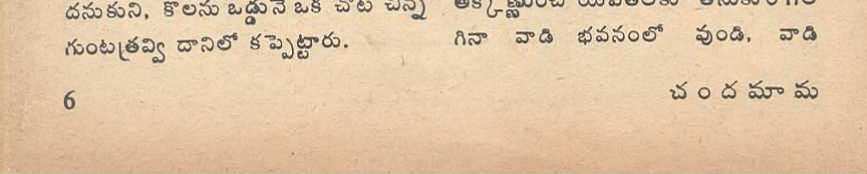 దనుకుని, కొలను ఒడ్డునే ఒక చోట చిన్న
గుంటత్రవ్వి దానిలో కప్పెట్టారు.
గినా వాడి భవనంలో వుండి, వాడి
6
చందమామ